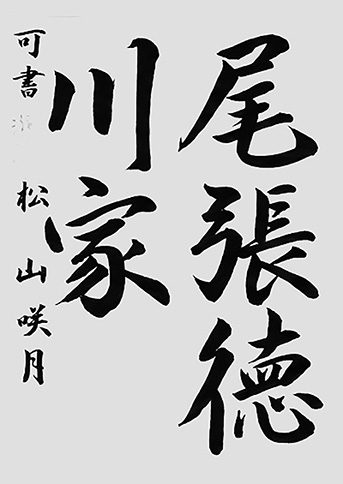 尾張徳
川家
可書 松山咲月